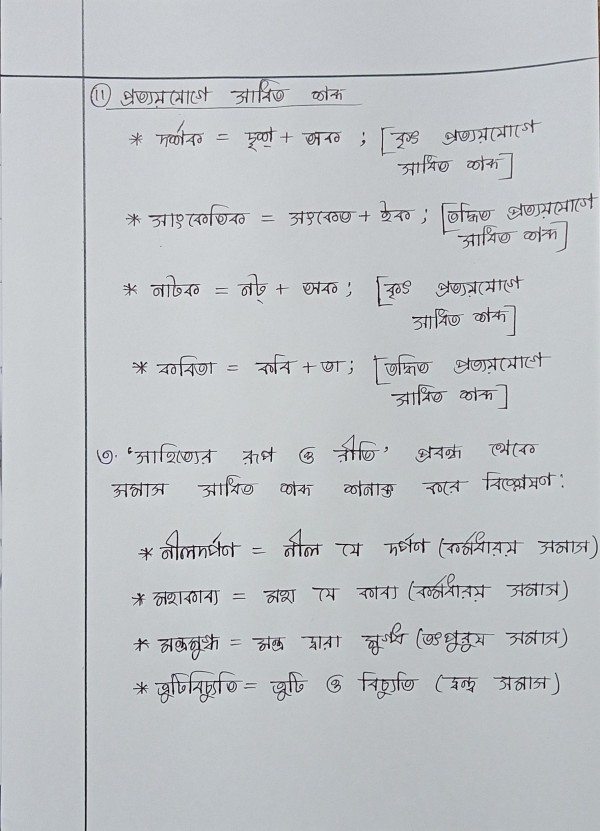 (11) প্রত্যয়যোগে সাধিত শব্দ
* দর্শক = দৃশ্ + অক ; [কৃৎ প্রত্যয়যোগে
সাধিত শব্দ]
* সাংকেতিক = সংকেত + ইক ; [তদ্ধিত প্রত্যয়যোগে
সাধিত শব্দ]
* নাটক = নট্ + অক ; [কৃৎ প্রত্যয়যোগে
সাধিত শব্দ]
* কবিতা = কবি + তা ; [তদ্ধিত প্রত্যয়যোগে
সাধিত শব্দ]
৩. 'সাহিত্যের রূপ ও রীতি' প্রবন্ধ থেকে
সমাস সাধিত শব্দ শনাক্ত করে বিশ্লেষণ :
* নীলদর্পণ = নীল যে দর্পণ (কর্মধারয় সমাস)
* মহাকাব্য = মহা যে কাব্য (কর্মধারয় সমাস)
* মন্ত্রমুগ্ধ = মন্ত্র দ্বারা মুগ্ধ (তৎপুরুষ সমাস)
* ত্রুটিবিচ্যুতি = ত্রুটি ও বিচ্যুতি (দ্বন্দ্ব সমাস)